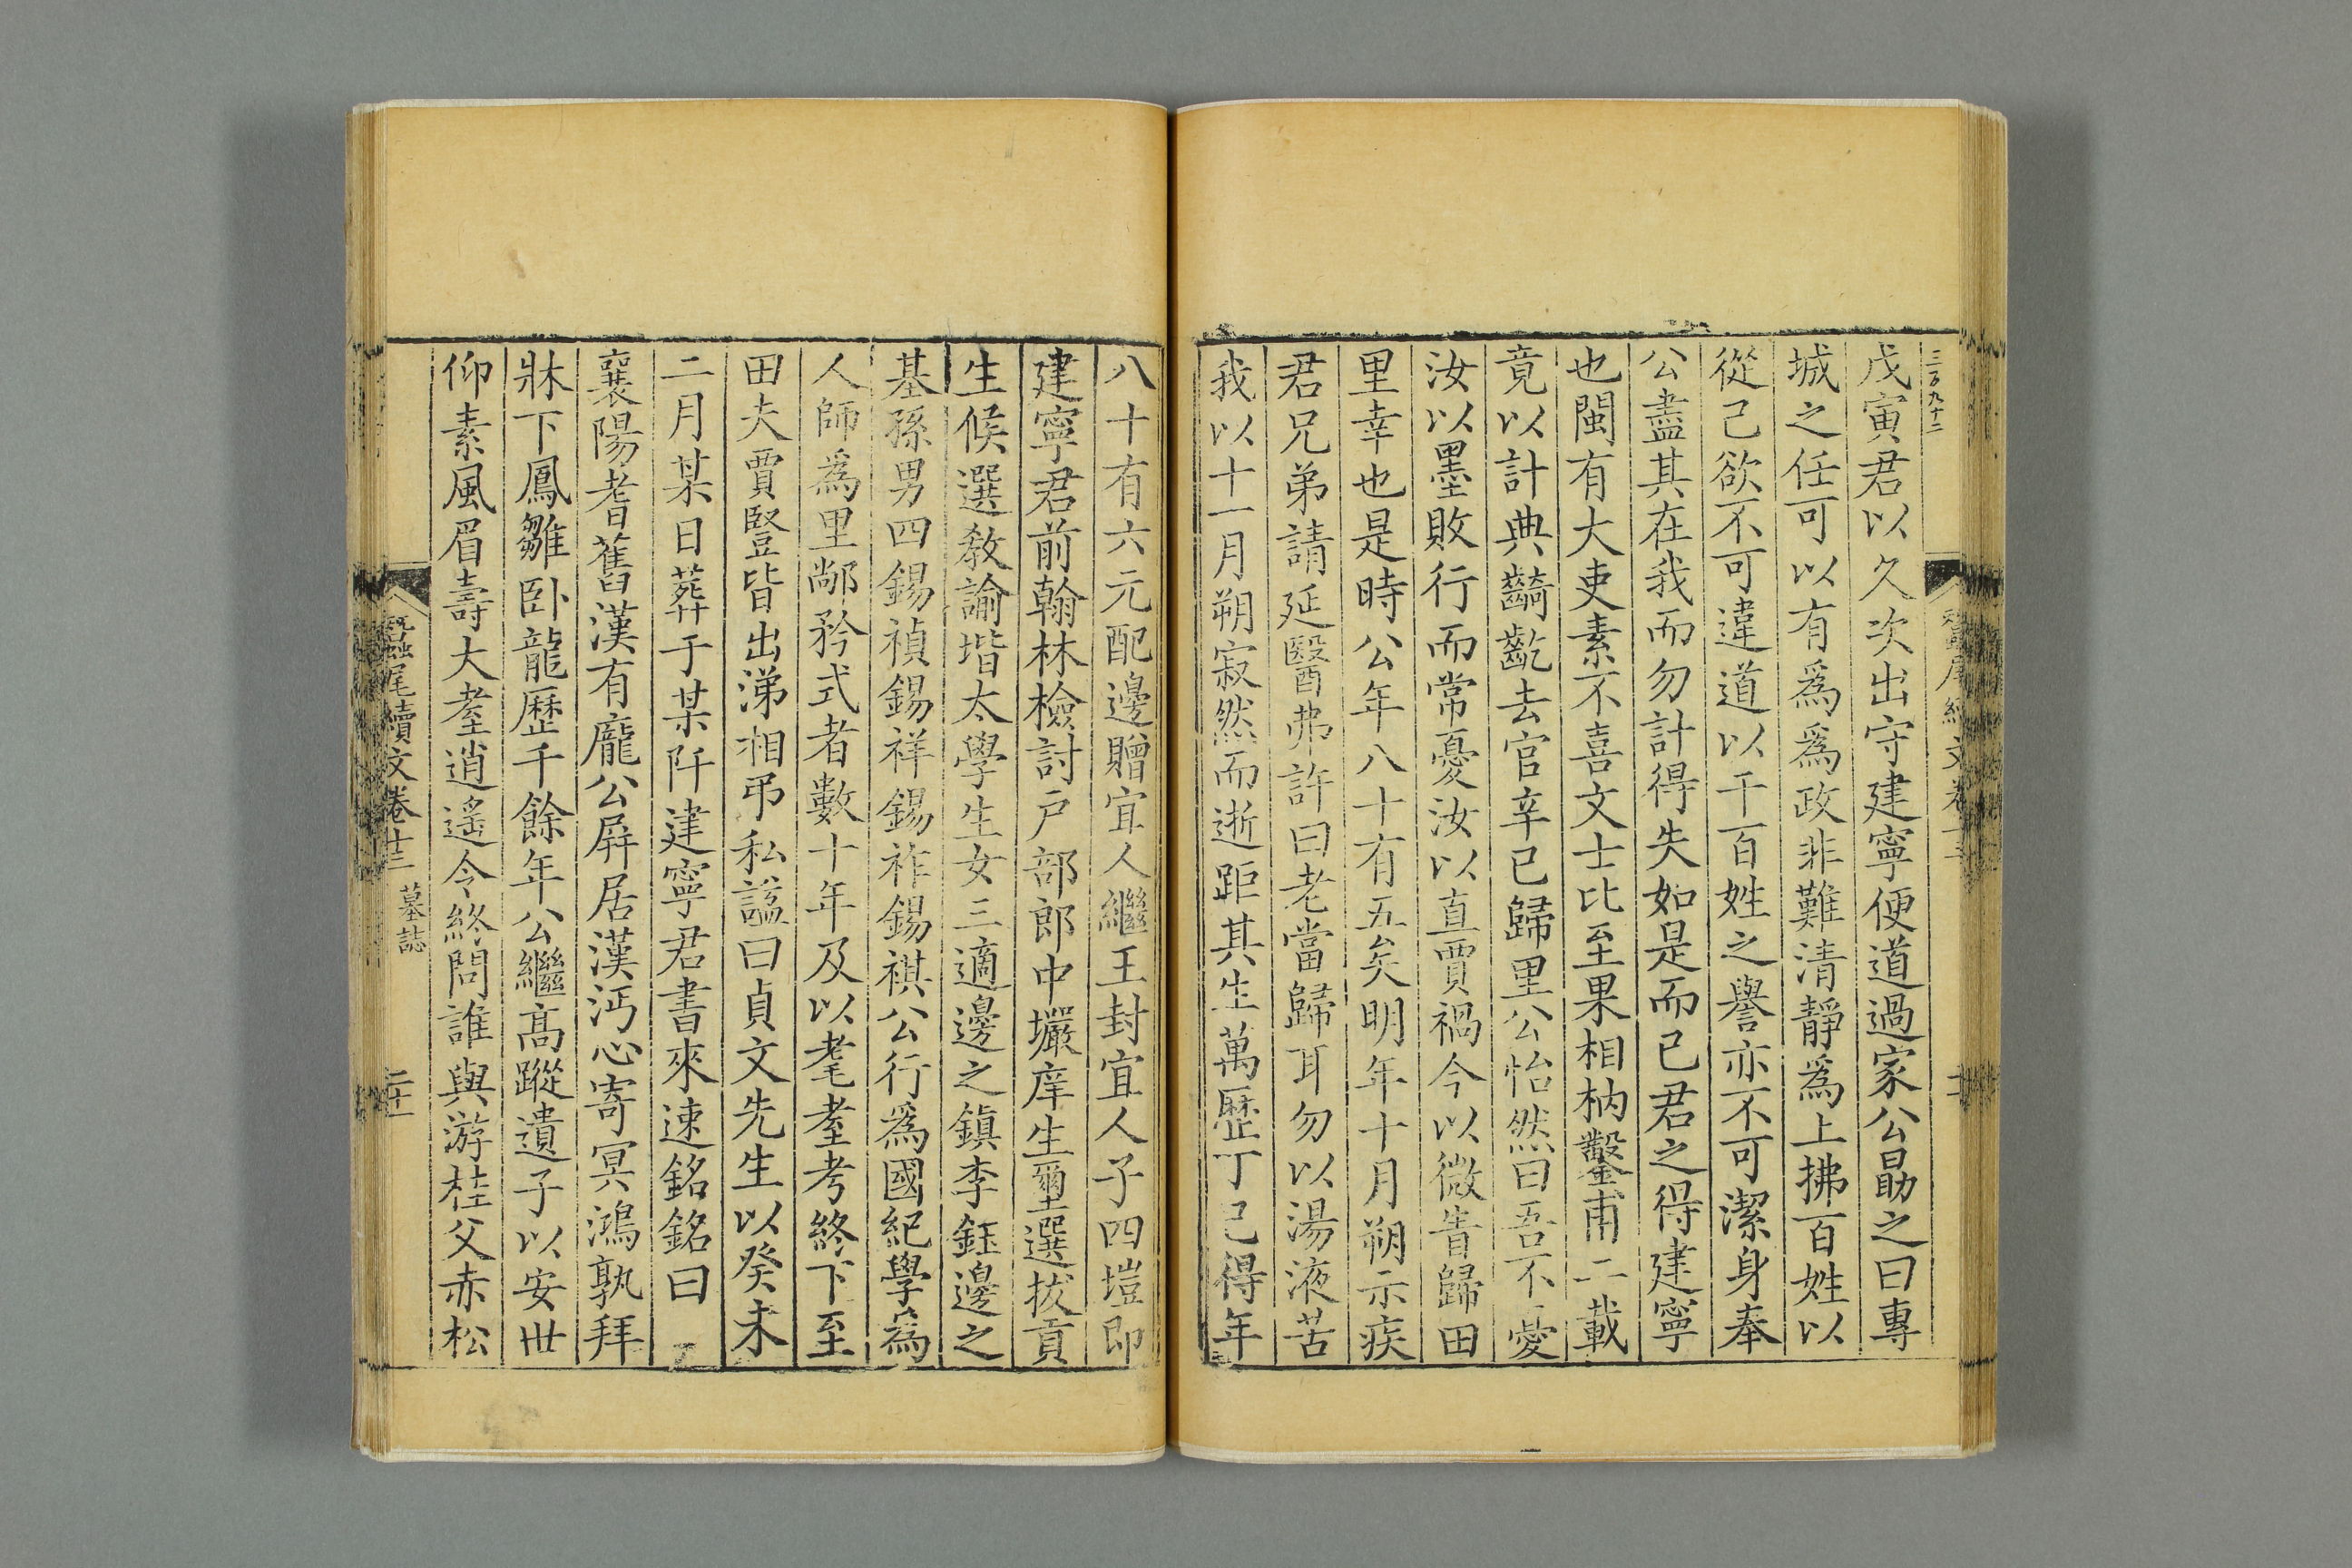 三百九十二
戊寅君以久次出守建寧便道過家公勗之曰專
城之任可以有為為政非難清靜為上拂百姓以
從己欲不可違道以干百姓之譽亦不可潔身奉
公盡其在我而勿計得失如是而已君之得建寧
也閩有大吏素不喜文士比至果相枘鑿甫二載
竟以計典齮齕去官辛巳歸里公怡然曰吾不憂
汝以墨敗行而常憂汝以直賈禍今以微眚歸田
里幸也是時公年八十有五矣明年十月朔示疾
君兄弟請延醫弗許曰老當歸耳勿以湯液苦
我以十一月朔寂然而逝距其生萬歷丁巳得年
八十有六元配邊贈宜人繼王封宜人子四塏即
建寧君前翰林檢討戶部郎中壧庠生壐選拔貢
生候選教諭堦太學生女三適邊之鎮李鈺邊之
基孫男四錫禎錫祥錫祚錫祺公行為國紀學為
人師為里鄰矜式者數十年及以耄耋考終下至
田夫賈豎皆出涕相弔私謚曰貞文先生以癸未
二月某日葬于某阡建寧君書來速銘銘曰
襄陽耆舊漢有龐公屏居漢沔心寄冥鴻孰拜
牀下鳳雛卧龍歷千餘年公繼高蹤遺子以安世
仰素風眉壽大耋逍遙令終問誰與游桂父赤松
蠶尾續文卷十三 墓誌 二十二